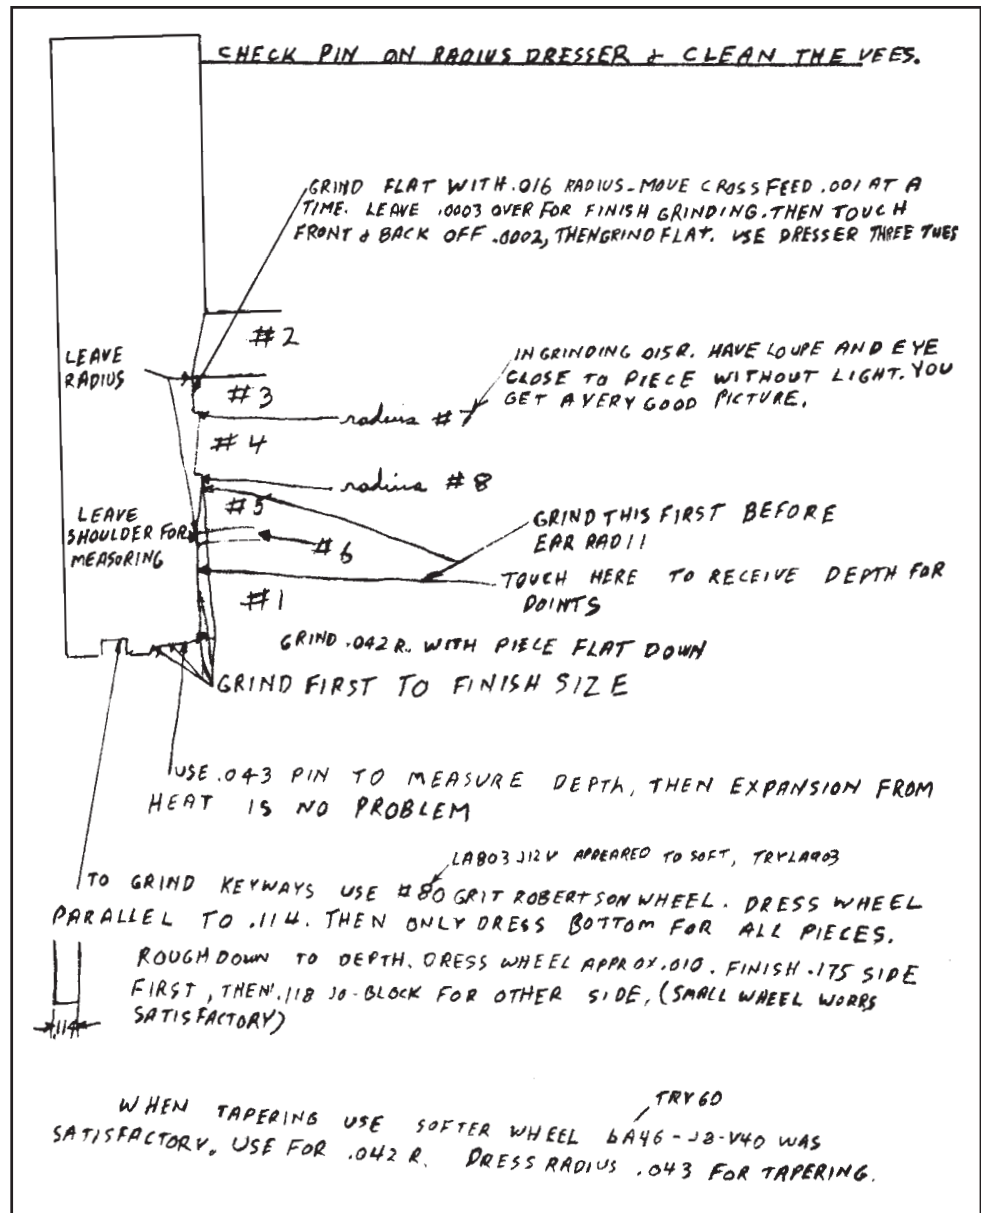 CHECK PIN ON RADIUS DRESSER & CLEAN THE VEES.
GRIND FLAT WITH .016 RADIUS-MOVE CROSSFEED .001 AT A
TIME. LEAVE .0003 OVER FOR FINISH GRINDING. THEN TOUCH
FRONT & BACK OFF .0002, THEN GRIND FLAT. USE DRESSER THREE TIMES
#2
LEAVE
RADIUS
#3
IN GRINDING 015R. HAVE LOUPE AND EYE
CLOSE TO PIECE WITHOUT LIGHT. YOU
GET A VERY GOOD PICTURE.
radius #7
#4
radius #8
#5
LEAVE
SHOULDER FOR
MEASORING
GRIND THIS FIRST BEFORE
EAR RADII
#6
TOUCH HERE TO RECEIVE DEPTH FOR
POINTS
#1
GRIND .042 R. WITH PIECE FLAT DOWN
GRIND FIRST TO FINISH SIZE
USE .043 PIN TO MEASURE DEPTH, THEN EXPANSION FROM
HEAT IS NO PROBLEM
LA803 J12V APPEARED TO SOFT, TRY LA903
TO GRIND KEYWAYS USE #80 GRIT ROBERTSON WHEEL. DRESS WHEEL
PARALLEL TO .114. THEN ONLY DRESS BOTTOM FOR ALL PIECES.
ROUGH DOWN TO DEPTH. DRESS WHEEL APPROX .010. FINISH .175 SIDE
FIRST, THEN .118 JO-BLOCK FOR OTHER SIDE, (SMALL WHEEL WORRS
SATISFACTORY)
.114
TRY 60
WHEN TAPERING USE SOFTER WHEEL 6A46-J8-V40 WAS
SATISFACTORY. USE FOR .042 R. DRESS RADIUS .043 FOR TAPERING.